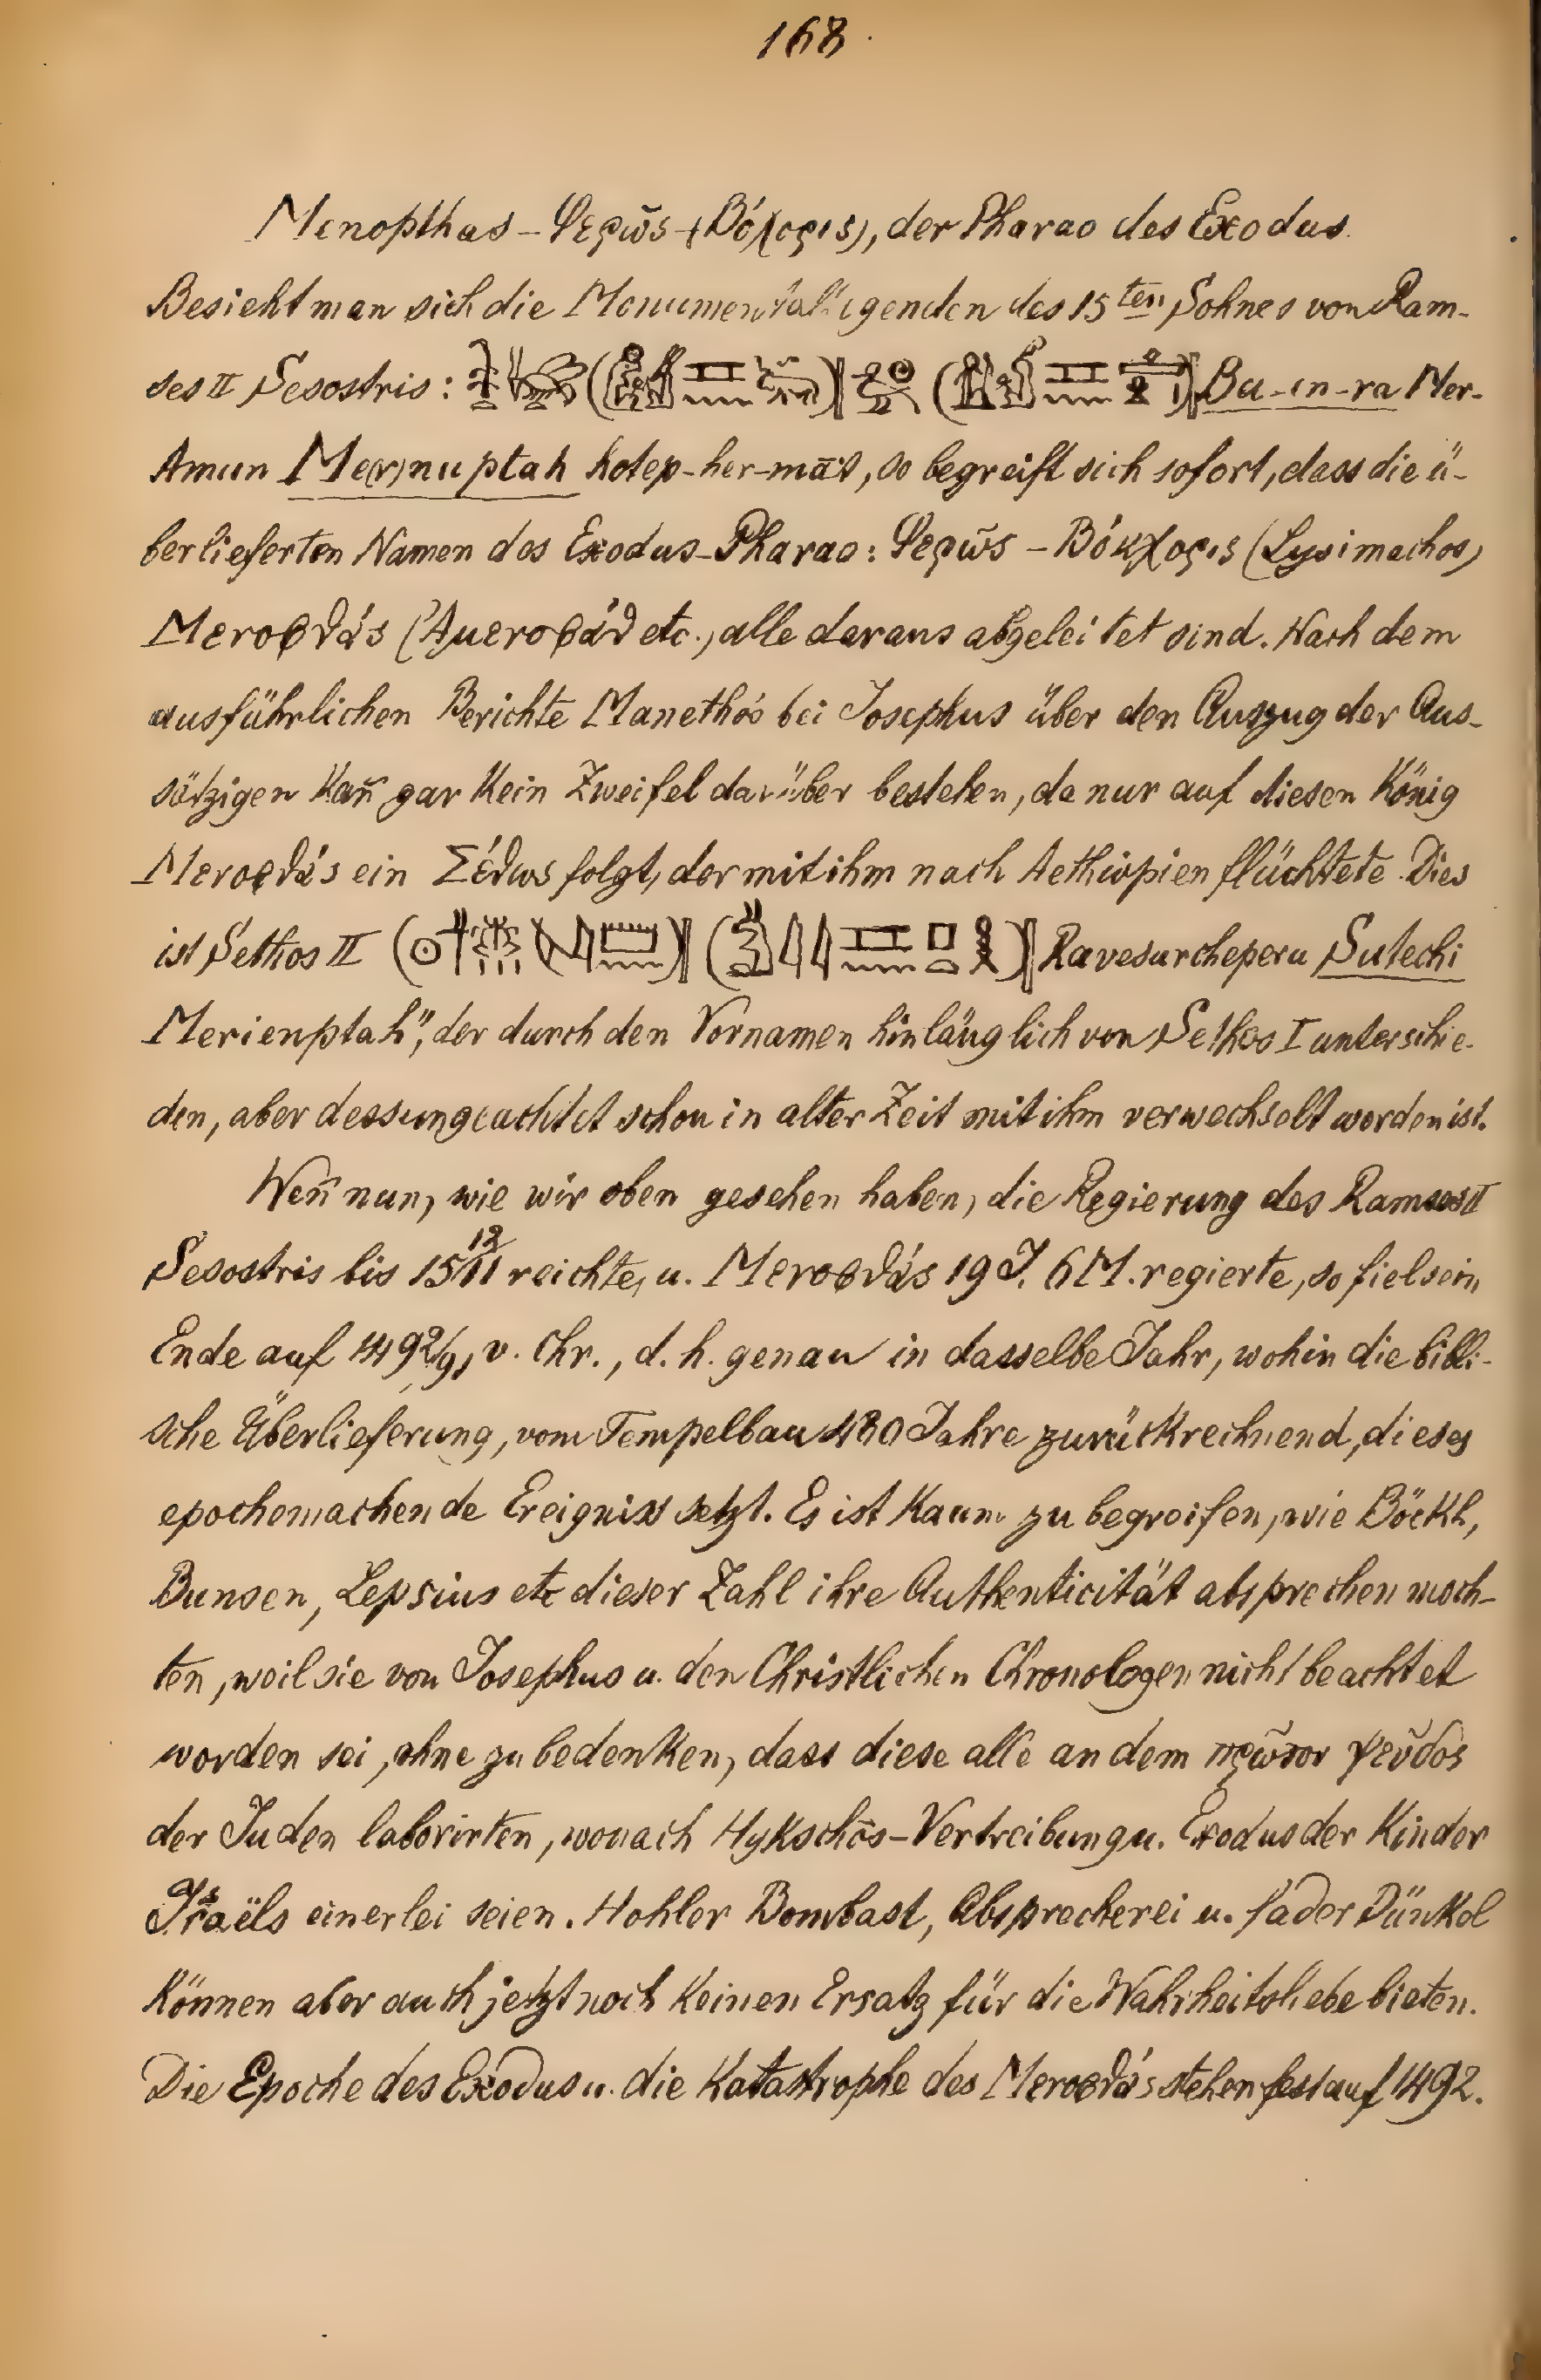 168.
Menopthas - Φερῶς + (Βόχορις), der Pharao des Exodus.
Besieht man sich die Monumentallegenden des 15ten Sohnes von Ram-
ses II Sesostris: Ba-in-ra Mer-
Amun Me(r)nuptah hotep-her-māt, so begreift sich sofort, dass die ü-
berlieferten Namen des Exodus-Pharao: Φερῶς - Βόκχορις (Lysimachos)
Μενοφθάς (Ἀμενοφάθ etc., alle daraus abgeleitet sind. Nach dem
ausführlichen Berichte Manetho's bei Josephus über den Auszug der Aus-
sätzigen kan̄ gar kein Zweifel darüber bestehen, da nur auf diesen König
Μενοφθάς ein Σέθως folgt, der mit ihm nach Aethiopien flüchtete. Dies
ist Sethos II Ravesurcheperu Sutechi
Merienptah", der durch den Vornamen hinlänglich von Sethos I unterschie-
den, aber dessungeachtet schon in alter Zeit mit ihm verwechselt worden ist.
Wen̄ nun, wie wir oben gesehen haben, die Regierung des Ramses II
Sesostris bis 1512/11 reichte, u. Μενοφθάς 19 J. 6 M. regierte, so fiel sein
Ende auf 1492/91 v. Chr., d. h. genau in dasselbe Jahr, wohin die bibli-
sche Überlieferung, vom Tempelbau 480 Jahre zurückrechnend, dieses
epochemachende Ereigniss setzt. Es ist kaum zu begreifen, wie Böckh,
Bunsen, Lepsius etc dieser Zahl ihre Authenticität absprechen moch-
ten, weil sie von Josephus u. den Christlichen Chronologen nicht beachtet
worden sei, ohne zu bedenken, dass diese alle an dem πρῶτον ψεῦδος
der Juden laborirten, wonach Hykschōs-Vertreibung u. Exodus der Kinder
Israëls einerlei seien. Hohler Bombast, Absprecherei u. fader Dünkel
können aber auch jetzt noch keinen Ersatz für die Wahrheitsliebe bieten.
Die Epoche des Exodus u. die Katastrophe des Μενοφθάς stehen fest auf 1492.